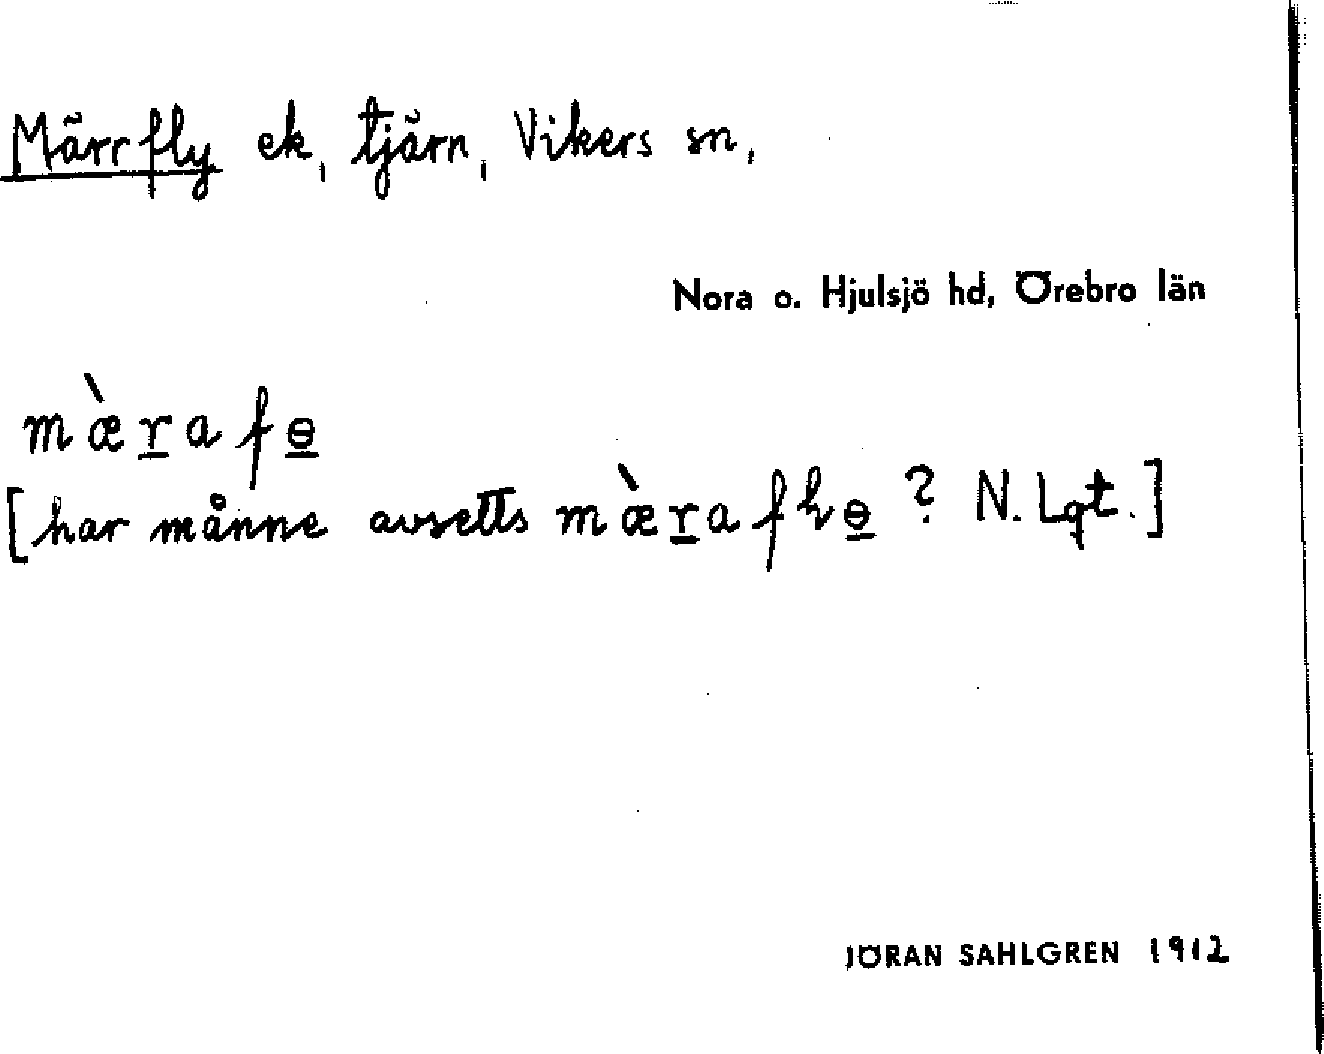 Märrfly ek, tjärn, Vikers sn,
Nora o. Hjulsjö hd, Örebro län
mæ̀r̲afɵ̲
[har månne avsetts mæ̀r̲afhɵ̲ ? N. Lqt.]
JÖRAN SAHLGREN 1912